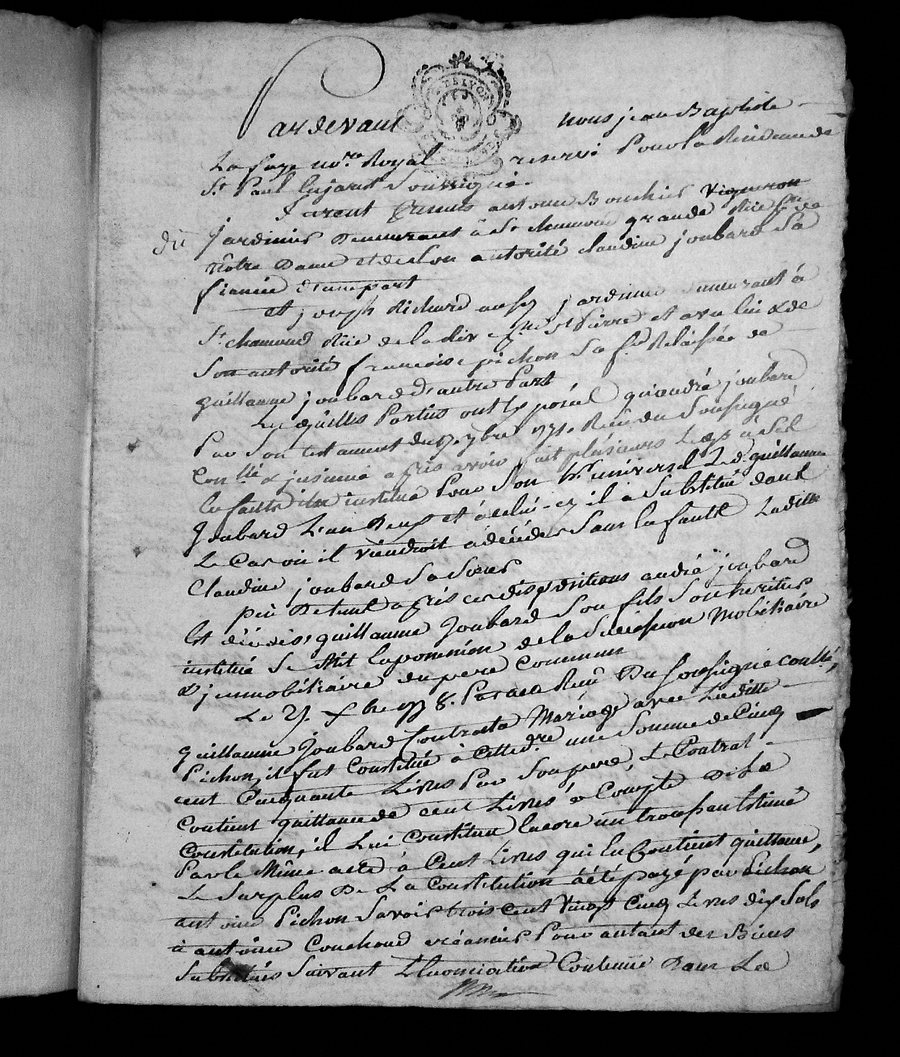 DE LYON
Pardevant nous jean Baptiste
La faye no.re Royal reservé Pour la Residence de
S.t Paul En jarest Soussigné.
furent presents antoine Bouchet Vigneron
du
jardinier Demeurant à St chamond grande Rüe de
nôtre Dame et de Son autorité claudine joubard Sa
fiancée d'une part
et joseph Richard aussy jardinier demeurant à
S.t chamond Rüe de la Rive St Pierre et avec lui & de
Son autorité françoise pichon Sa f.e Relaissée de
guillaume joubard D'autre Part
Lesquelles Parties ont Exposé qu'andré joubard
Par Son testament du 17 1771. Reçu du Soussigné
Con.llé & jnsinué apris avoir fait plusieurs Legs à
institué Pour Son h.er universel Led. guillaume
joubard L'un Deux et à celui-cy il à Substitué dans
Le Cas où il Viendroit à décéder Sans Enfants Laditte
Claudine joubard Sa Soeur
peu De tems apris ces dispositions andré joubard
Est décédé, guillaume joubard Son fils Son heritier
institué Se Mit En possession de la Succession Mobiliaire
& jmmobiliaire du pere Commun
Le Par acte Reçu Du Soussigné controllé,
guillaume joubard Contracta Mariage avec Laditte
Pichon, il fut Constitué à Cette d.re une Somme de Cinq
cent Cinquante Livres Par Son pere, Le Contrat
Contient quittance de cent Livres à Compte De La
Constitution, il Lui Constitua Encore un troupeau Estimé
Par le Même acte à Cent Livres qui En Contient quittance,
Le Surplus De La Constitution à été payé par Pichon
antoine Pichon Savoir trois cent Vingt Cinq Livres dix Sols
à antoine Couchoud créancier Pour autant des Biens
Substitués Suivant L'Enonciation Contenüe Dans Le